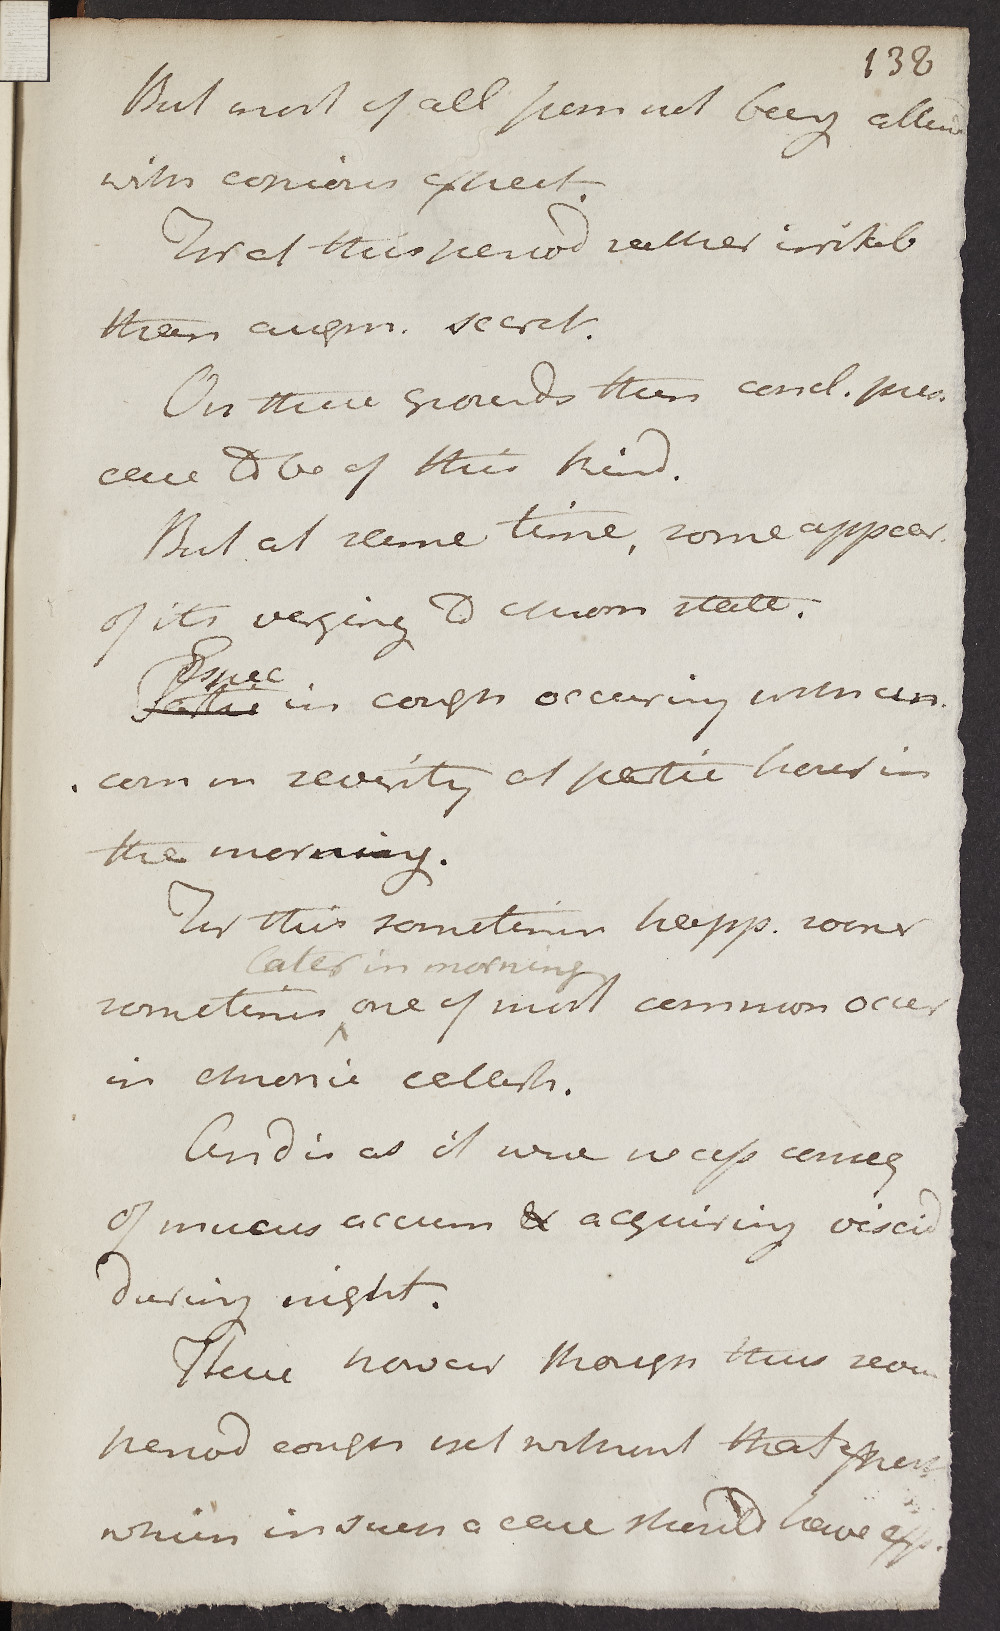 138
But most of all from not being atten
with copious expect.
For at this period rather irritab
than augm. secret.
On these grounds then concl. pres.
case to be of this kind.
But at same time, some appear.
of its verging to chron state.
Espec
in cough occuring with un.
com on severity at partic hour in
the morning.
For this sometimes happ. sooner
later in morning
sometimes one of most common occur
in chronic catarrh.
And is as it were necess conseq
of mucus accum & acquiring viscid
during night.
Here howevr though thus seve
period cough yet without that expect
which in such a case should have exp.